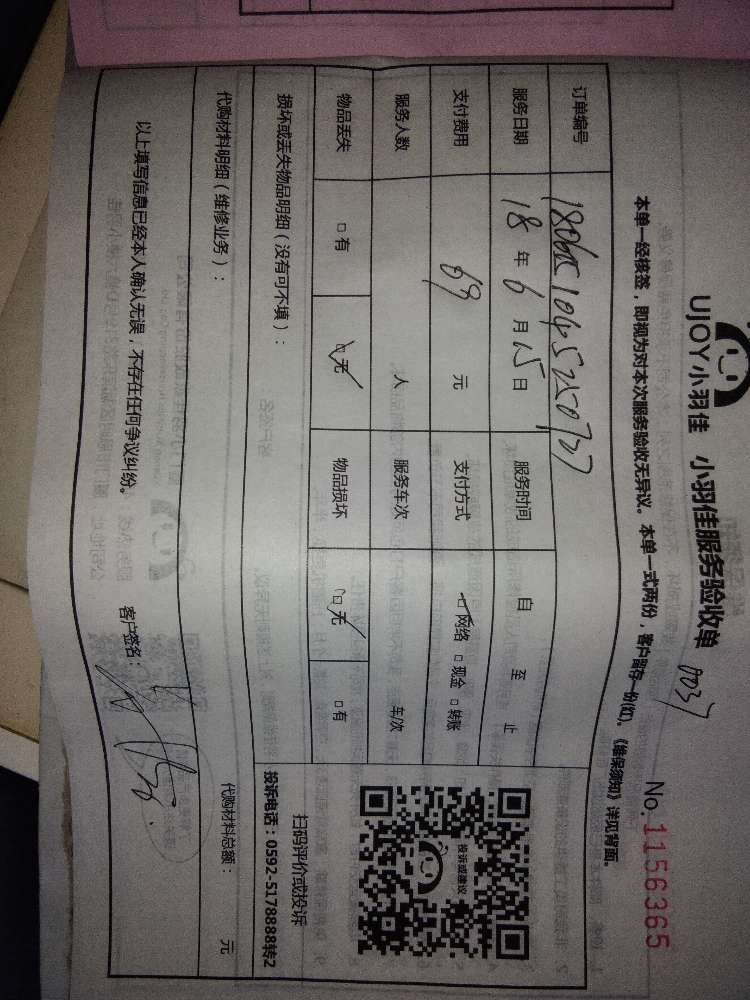 UJOY小羽佳 小羽佳服务验收单 0037 No. 1156365
本单一经核签，即视为对本次服务验收无异议。本单一式两份，客户留存一份(红)。《维保须知》详见背面。
订单编号
服务日期 18 年 6 月 15 日 服务时间 自 至 止
支付费用 69 元 支付方式 □网络 □现金 □转账
服务人数 人 服务车次 车/次
物品丢失 □有 □无 物品损坏 □无 □有
投诉或建议
扫码评价或投诉
投诉电话：0592-5178888转2
损坏或丢失物品明细（没有可不填）：
代购材料明细（维修业务）： 代购材料总额： 元
以上填写信息已经本人确认无误，不存在任何争议纠纷。 客户签名：